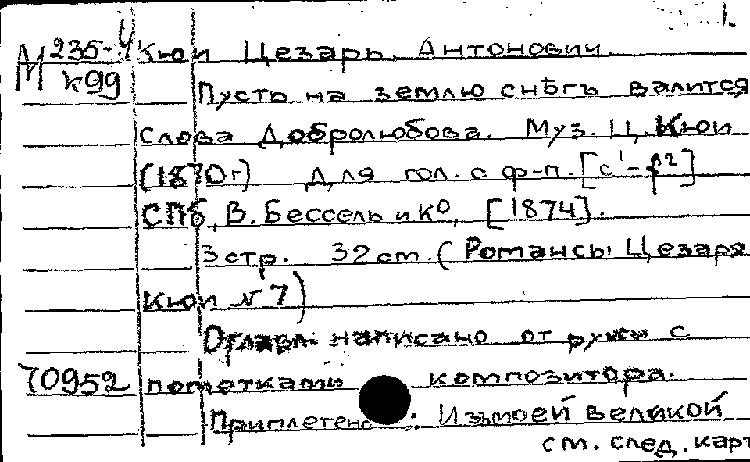 1.
М 235-4 Кюи Цезарь Антонович
к99
Пусть на землю снѣгъ валится
Слова Добролюбова. Муз. Ц. Кюи
(1870г) Для гол. с ф-п. [c¹-f²]
СПб, В. Бессель и К⁰, [1874].
3 стр. 32 cm. (Романсы Цезаря
Кюи № 7)
написано от руки с
70952 пометками композитора.
Приплетено: Изъ моей великой
см. след. карт